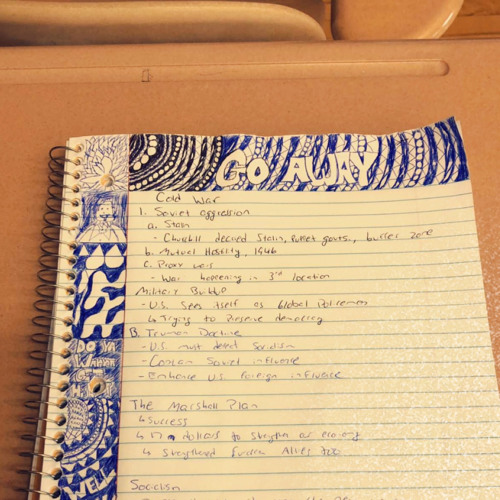 GO AWAY
Cold War
1. Soviet aggression
a. Stalin
- Churchill decried Stalin, Puppet govts., buffer zone
b. Mutual Hostility, 1946
c. Proxy war
- War happening in 3rd location
Military
- U.S. Sees itself as Global Policemen
↳ Trying to Preserve democracy
B. Truman Doctrine
- U.S. must defeat Socialism
- Contain Soviet influence
- Enhance U.S. foreign influence
The Marshall Plan
↳ Success
↳ dollars to strengthen economy
↳ Strengthened Allies too
Socialism
DO YA
WANNA
WELL